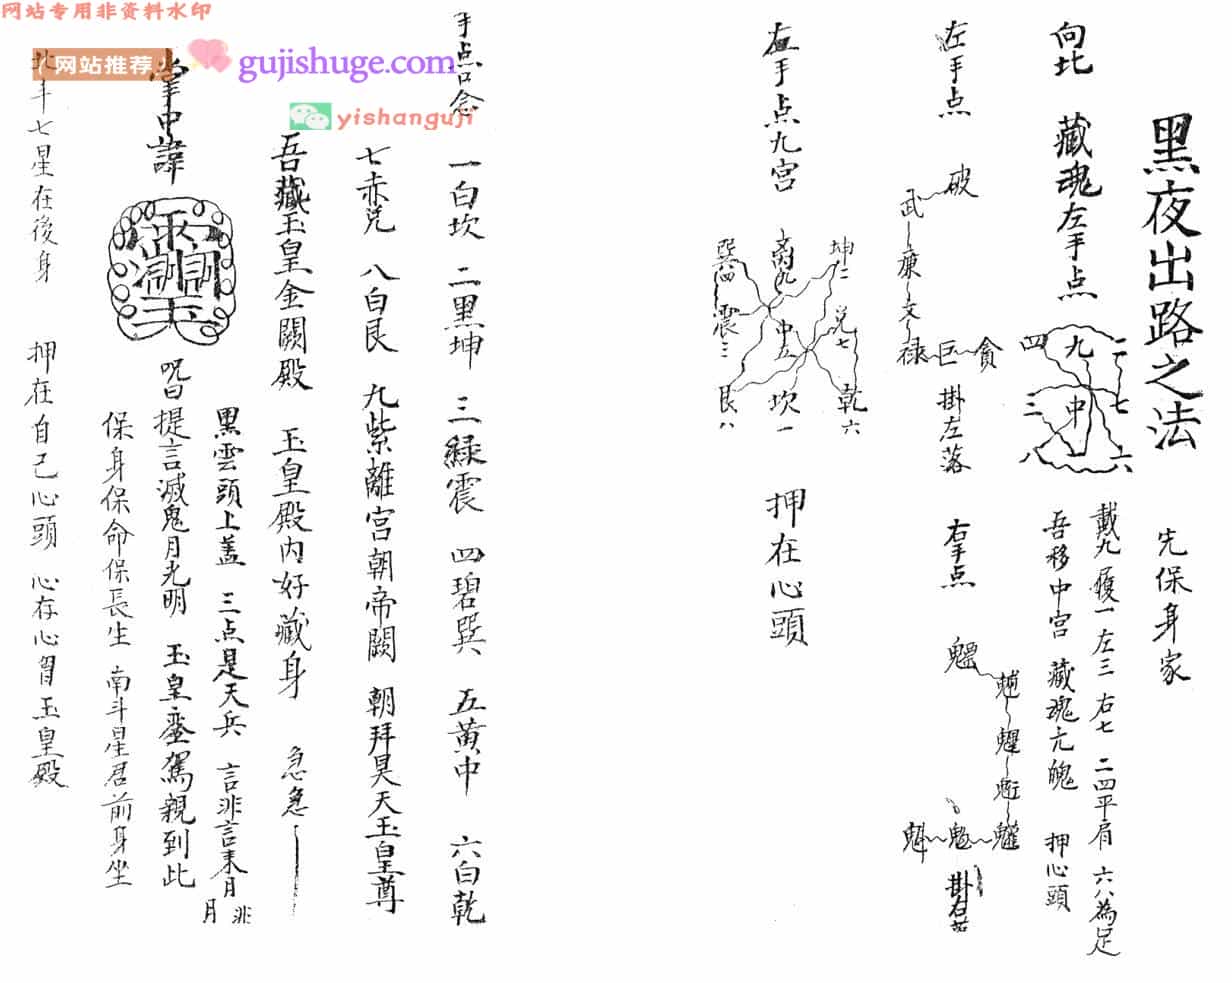 网站专用非资料水印
网站推荐
gujishuge.com
yishanguji
黑夜出路之法 先保身家
戴九履一左三右七 二四平肩 六八為足
向北 藏魂左手点 四 九 二 三 中 七 八 一 六 吾移中宫 藏魂亢魄 押心頭
左手点 破 武 廉 文 禄 巨 貪 掛左落 右手点
左手点九宫 巽四 離九 坤二 震三 中五 兑七 艮八 坎一 乾六 押在心頭
手点口念 一白坎 二黑坤 三緑震 四碧巽 五黄中 六白乾
七赤兑 八白艮 九紫離宫朝帝闕 朝拜昊天玉皇尊
吾藏玉皇金闕殿 玉皇殿内好藏身 急急
黑雲頭上盖 三点是天兵 言非言来月非月
掌中諱 咒曰提言滅鬼月光明 玉皇鑾駕親到此
保身保命保長生 南斗星君前身坐
北斗七星在後身 押在自己心頭 心存心習玉皇殿